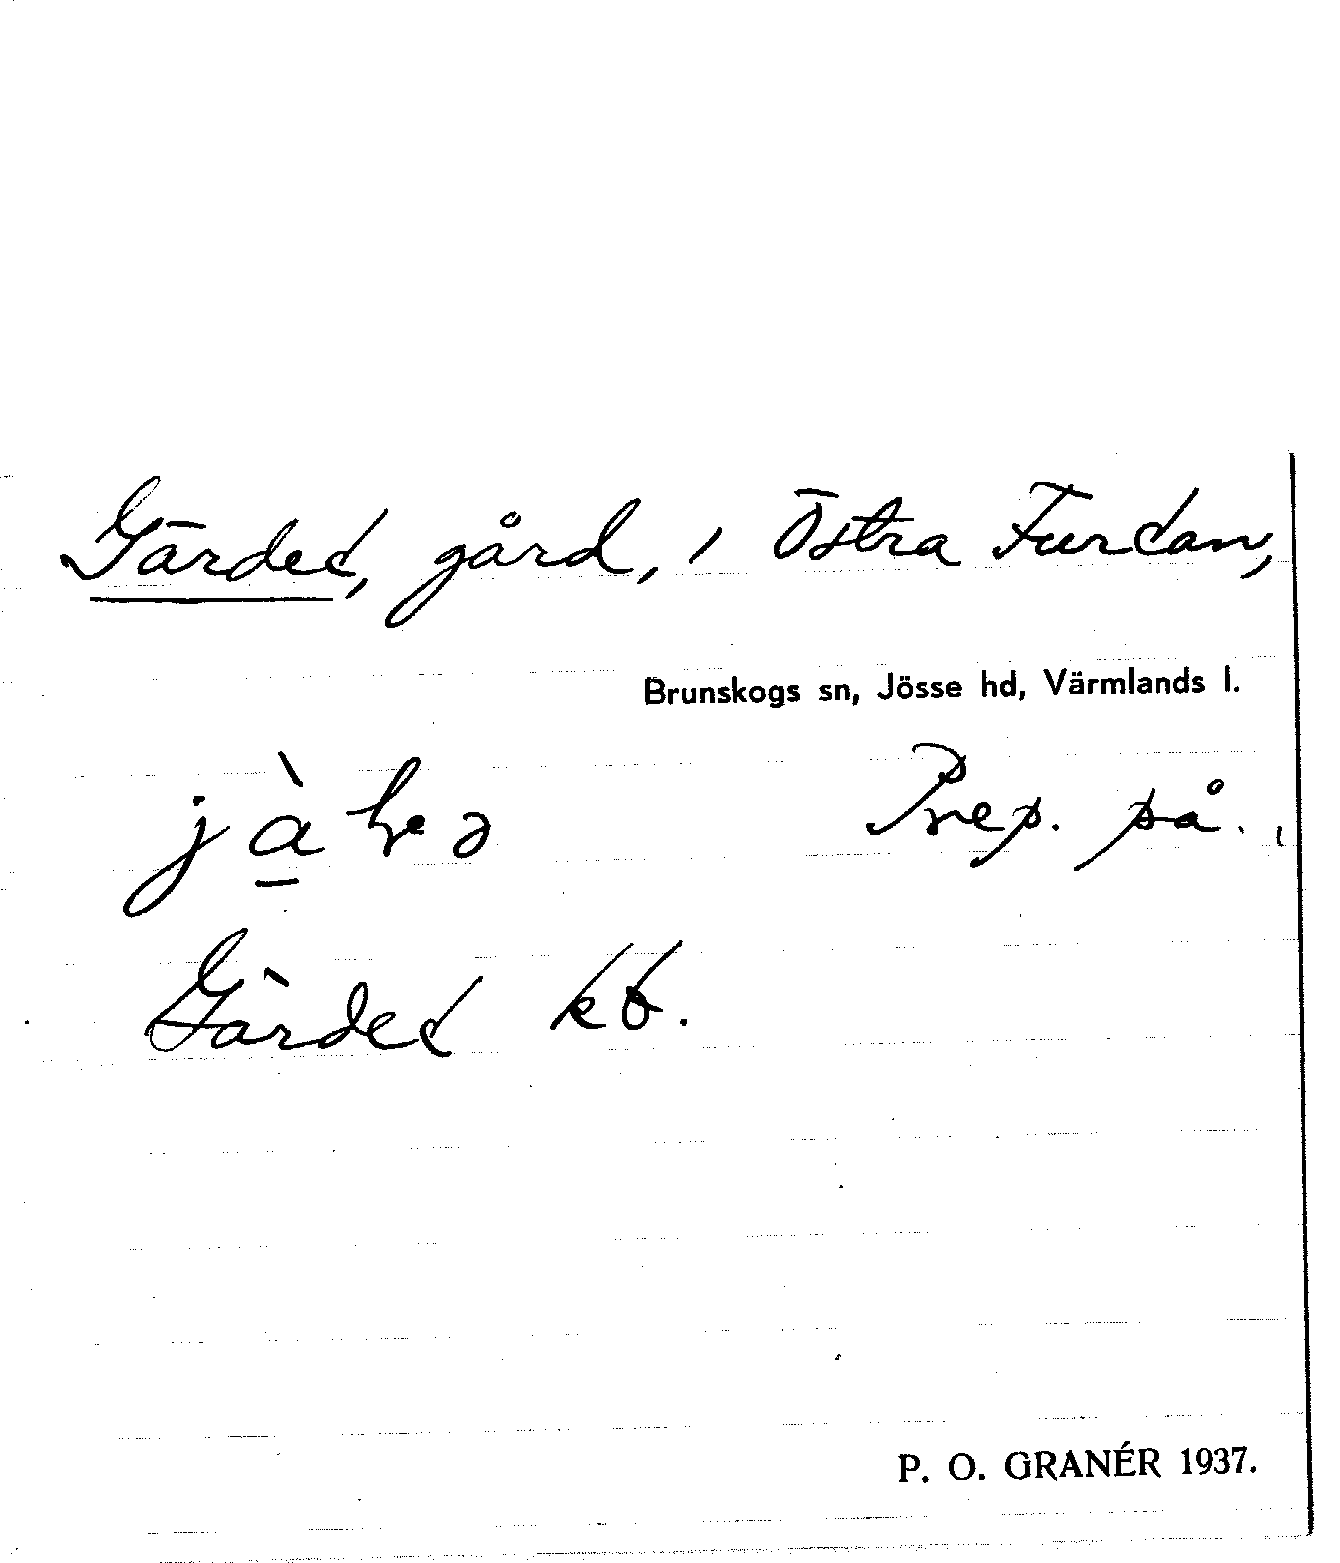 Gärdet, gård, i Östra Furtan,
Brunskogs sn, Jösse hd, Värmlands l.
Prep. på.
Gärdet kb.
P. O. GRANÉR 1937.